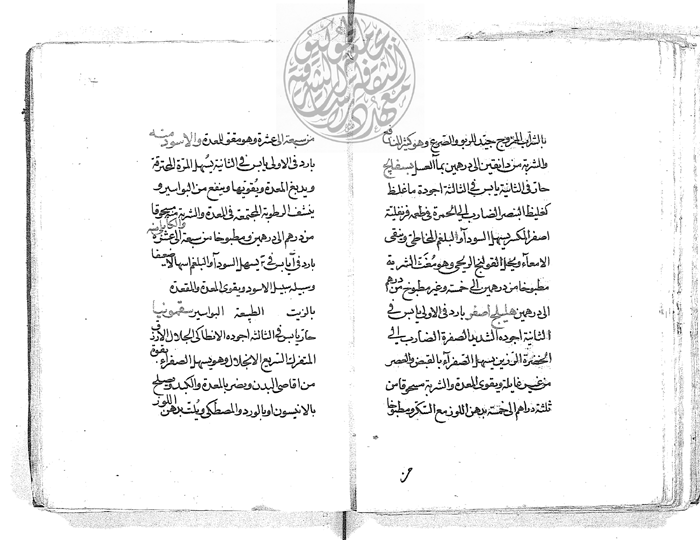 بالشراب الممزوج جيد للربو والصرع وهو كثير المنافع
والشربة من دانقين الى درهمين بماء العسل بسفايج
حار في الثانية يابس في الثالثة اجوده ما غلظ
كغلظ الخنصر الضارب الى الحمرة في طعمه قرنفلية
اصفر المكسر يسهل السودآ والبلغم المخاطي وينقي
الامعآء ويحل القولنج الريحي وهو مغث الشربة
مطبوخا من درهمين الى خمسة وغير مطبوخ من درهم
الى درهمين هليلج اصفر بارد في الاولى يابس في
الثانية اجوده الشديد الصفرة الضارب الى
الخضرة الرزين يسهل الصفرآء بالقبض والعصر
من غير غايلة ويقوي المعدة والشربة مسحوقا من
ثلثة دراهم الى خمسة بدهن اللوز مع السكر ومطبوخا
من
من سبعة الى عشرة وهو مقو للمعدة والاسود منه
بارد في الاولى يابس في الثانية يسهل المرة المحترقة
ويدبغ المعدة ويقويها وينفع من البواسير و
ينشف الرطوبة المجتمعة في المعدة والشربة منه مسحوقا
من درهم الى درهمين ومطبوخا من سبعة الى عشرة والكابلي منه
بارد في يابس في يسهل السودآ والبلغم اسهالا ضعيفا
وسبيله سبيل الاسود ويقوي المعدة والمقعدة
بالزيت الطبيعة البواسير سقمونيا
حار يابس في الثالثة اجوده الانطاكي الجلال الازرق
المتفرك السريع الانحلال وهو يسهل الصفرآء بقوة
من اقاصي البدن ويضر بالمعدة والكبد ويصلح
بالانيسون او بالورد والمصطكى ويلت بدهن اللوز